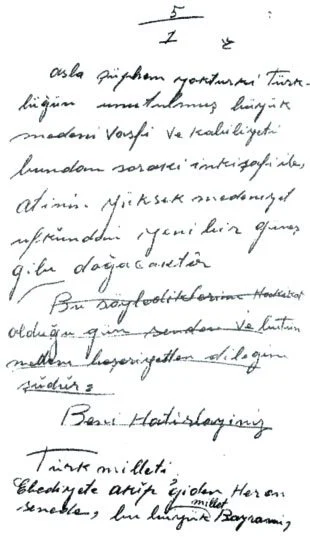 5
1
asla şüphem yokturki Türk-
lüğün unutulmuş büyük
medeni vasfı ve kabiliyeti
bundan sonraki inkişafı ile,
atinin yüksek medeniyet
ufkundan yeni bir güneş
gibi doğacaktır
Bu söylediklerim Hakikat
olduğu gün senden ve bütün
medeni beşeriyetten dileğim
şudur:
Beni Hatırlayınız
Türk milleti
Ebediyete akıp giden Her on
senede, bu büyük millet Bayramı,